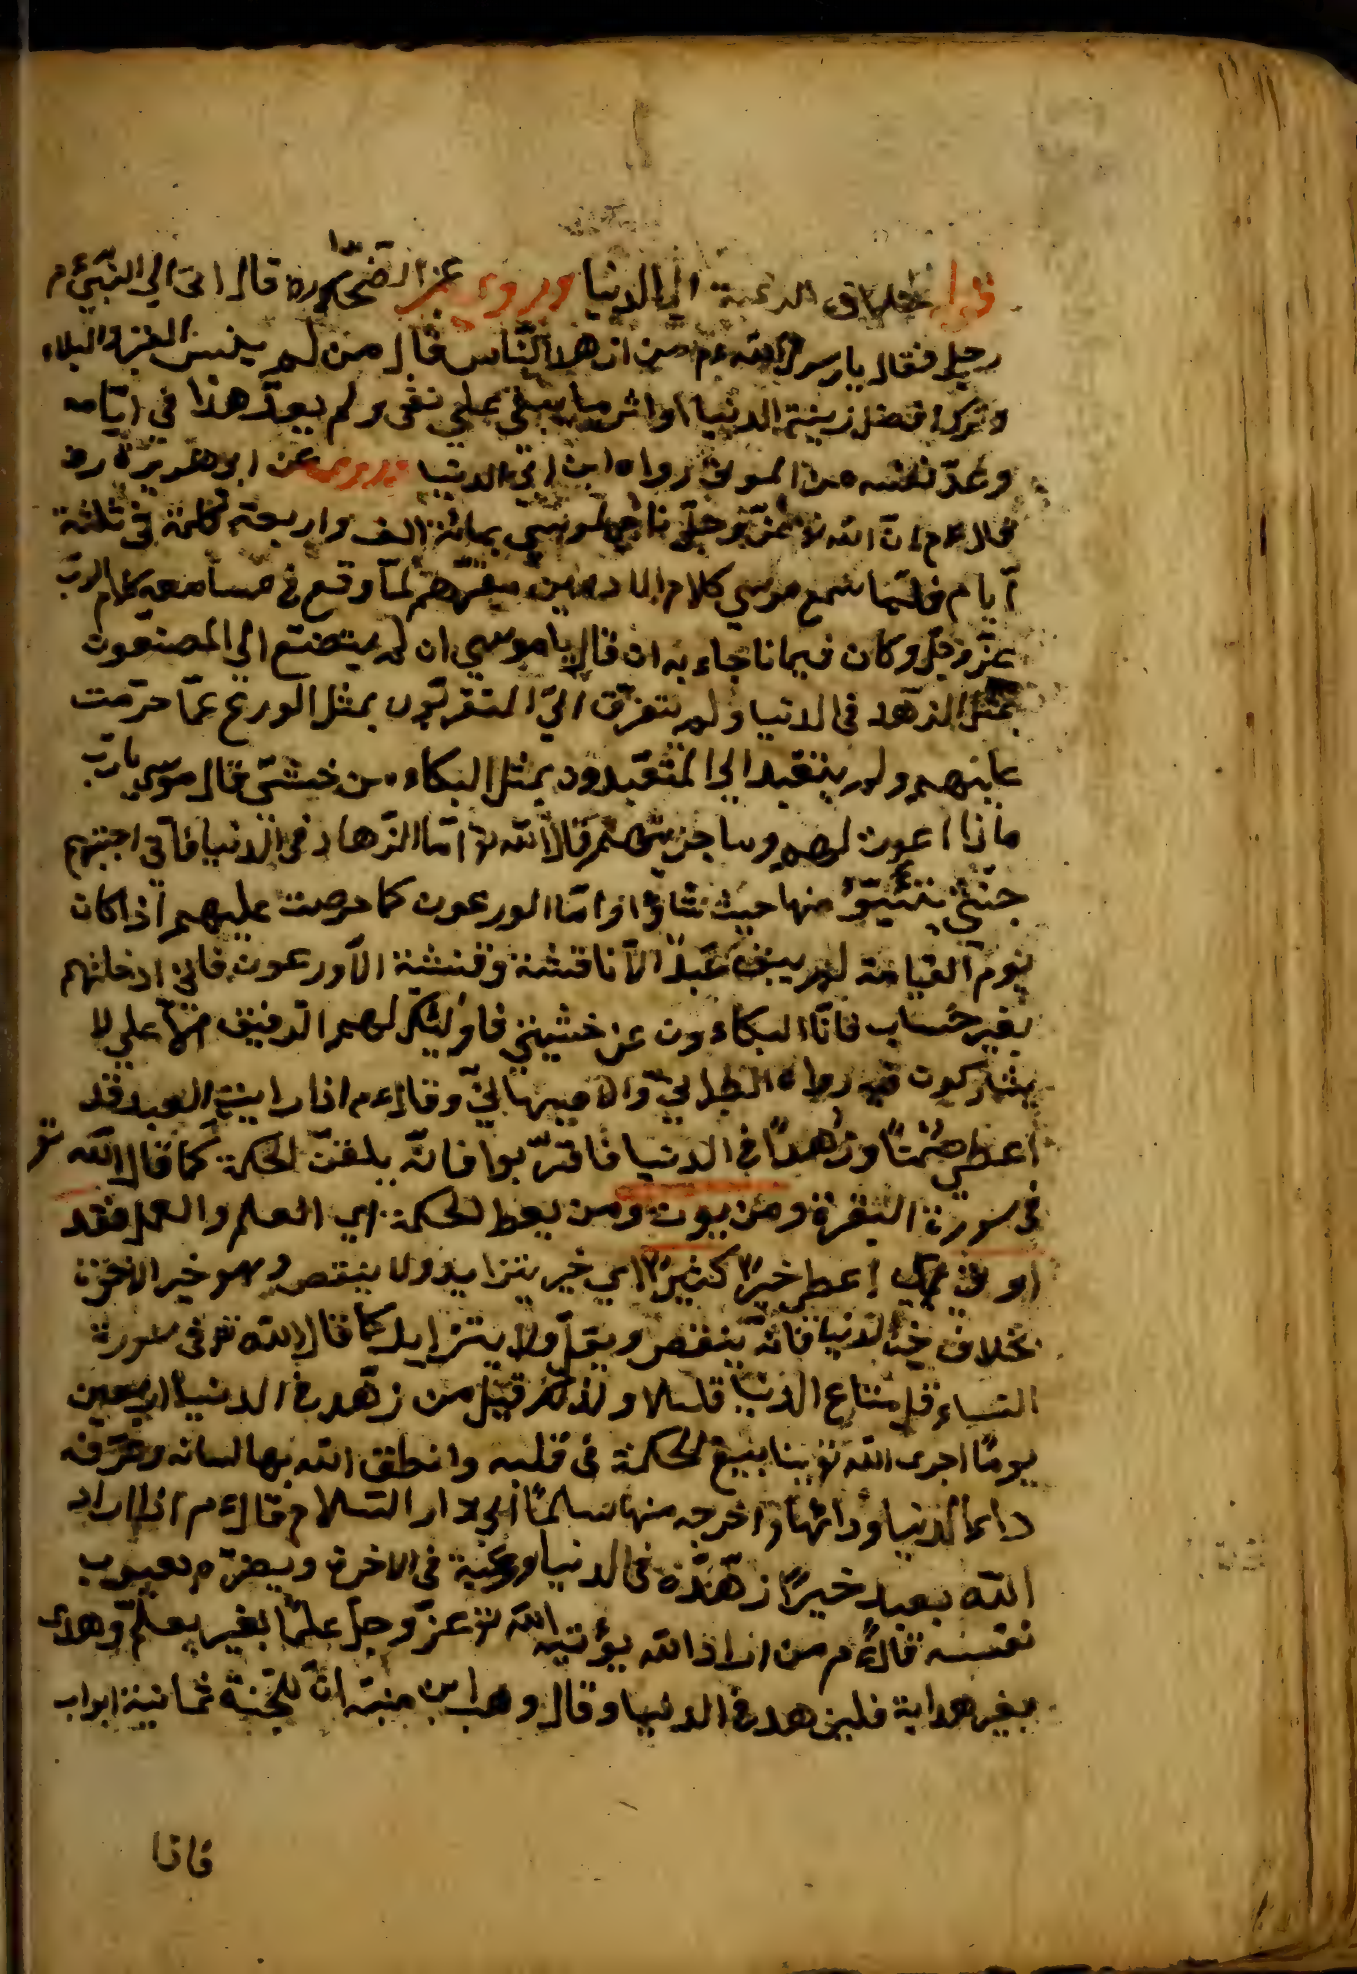 خلاف الرغبة الى الدنيا وروى عن الضحاك ره قال اتى الى النبى ءم
رجل فقال يا رسول الله ءم من ازهد الناس قال من لم ينس القبر والبلاء
وترك افضل زينة الدنيا واثر ما يبقى على ما يفنى ولم يعد هذا فى ايامه
وعد نفسه من الموتى رواه ابن ابى الدنيا وروى عن ابو هريرة رض
قال ءم ان الله تع عز وجل ناجى لموسى بمائة الف واربعة كلمة فى ثلثة
ايام فلما سمع موسى كلام الادميين مقتهم لما وقع فى مسامعه كلام الرب
عز وجل وكان فيما ناجاء به ان قال يا موسى ان لم يتصنع الى المصنعون
بمثل الزهد فى الدنيا ولم يتقرب الى المتقربون بمثل الورع عما حرمت
عليهم ولم يتعبد الى المتعبدون بمثل البكاء من خشيتى قال موسى يا رب
ماذا اعدت لهم وما جزيتهم قال الله تع اما الزهاد فى الدنيا فانى اجبتهم
جنتى منها حيث شاؤا واما الورعون كما حرمت عليهم اذا كان
يوم القيامة لم يبق عبد الا ناقشته وفتشته الا ورعون فانى ادخلتهم
بغير حساب فاما البكاءون عن خشيتى فاولئك لهم الرفيق على لا
يشاركون فيه رواه الطبرانى والاصبهانى وقال ءم اذا رايتم العبد قد
اعطى صمتا وزهدا فى الدنيا فاقتربوا فانه يلقن الحكمة كما قال الله تع
فى سورة البقرة ومن يوت ومن يعط الحكمة اى العلم والعمل فقد
اوتى اى اعطى خيرا كثيرا اى خير يتزايد ولا ينتقص وهو خير الاخرة
بخلاف خير الدنيا فانه ينقص ويقل ولا يتزايد كما قال الله تع فى سورة
النساء قل متاع الدنيا قليلا ولذلك قيل من زهد فى الدنيا اربعين
يوما اجرى الله تع ينابيع الحكمة فى قلبه وانطق الله بها لسانه وعرفه
داء الدنيا ودائها واخرجه منها سلما الى دار السلام قال ءم اذا اراد
الله بعبد خيرا زهده فى الدنيا ورغبة فى الاخرة وبصره بعيوب
نفسه قال ءم من اراد الله يؤتيه الله تع عز وجل علما بغير يعلم وهدى
بغير هداية فليزهد فى الدنيا وقال وهب ابن منبه ان للجنة ثمانية ابواب
فاذا